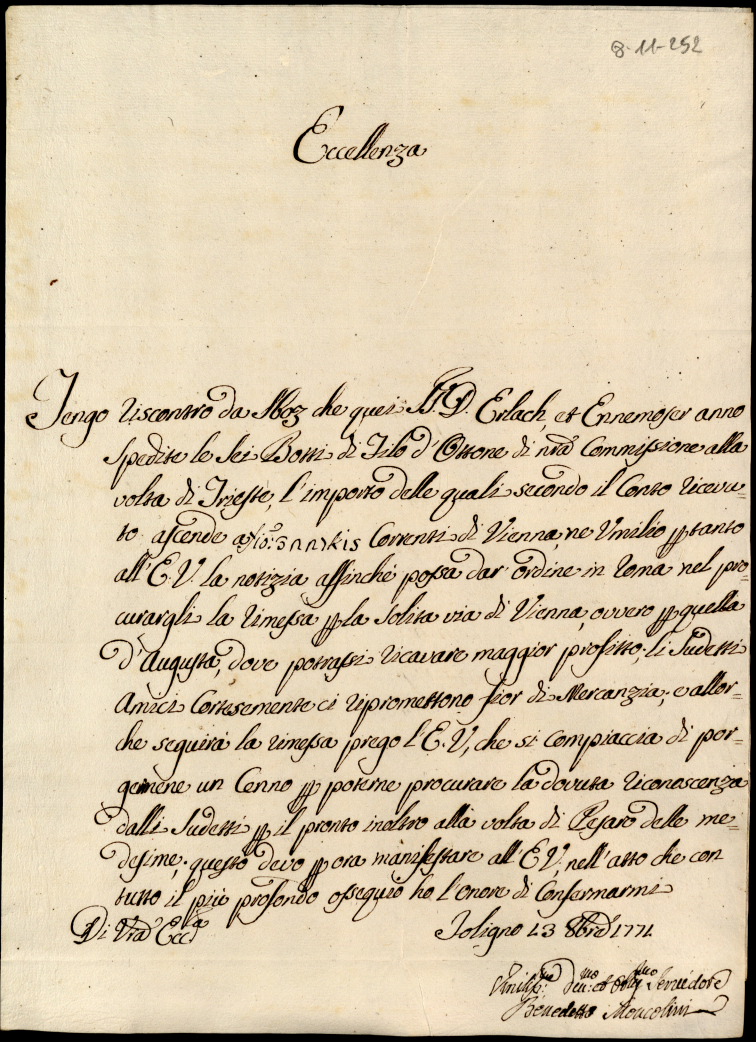 8-11-252
Eccellenza
Tengo riscontro da che quei SS.D. Erlach, et Ennemoser anno
spedite le sei Botti di Filo d'Ottone di nrã Commissione alla
volta di Trieste, l'importo delle quali secondo il Conto riceva-
to ascende a Correnti di Vienna, ne Umilio ꝑtanto
all'E.V. la notizia affinché possa dar' ordine in Roma nel pro-
curargli la rimessa ꝑ la solita via di Vienna, ovvero ꝑ quella
d'Augusta, dove potrassi ricavare maggior profitto; li sudetti
Amici Cortesemente ci ripromettono fior di Mercanzia; e allor-
che seguirà la rimessa prego l'E.V, che si compiaccia di por-
germene un Cenno ꝑ poterne procurare la dovuta riconoscenza
dalli sudetti ꝑ il pronto inoltro alla volta di Pesaro delle me-
desime; questo devo ꝑ ora manifestare all'E.V, nell'atto che con
tutto il più profondo ossequio ho l'onore di Confermarmi
Di Vrã Ecc.a
Foligno 13 8bre 1771
Umilis.mo Dev.mo et Obl.mo Servidore
Benedetto